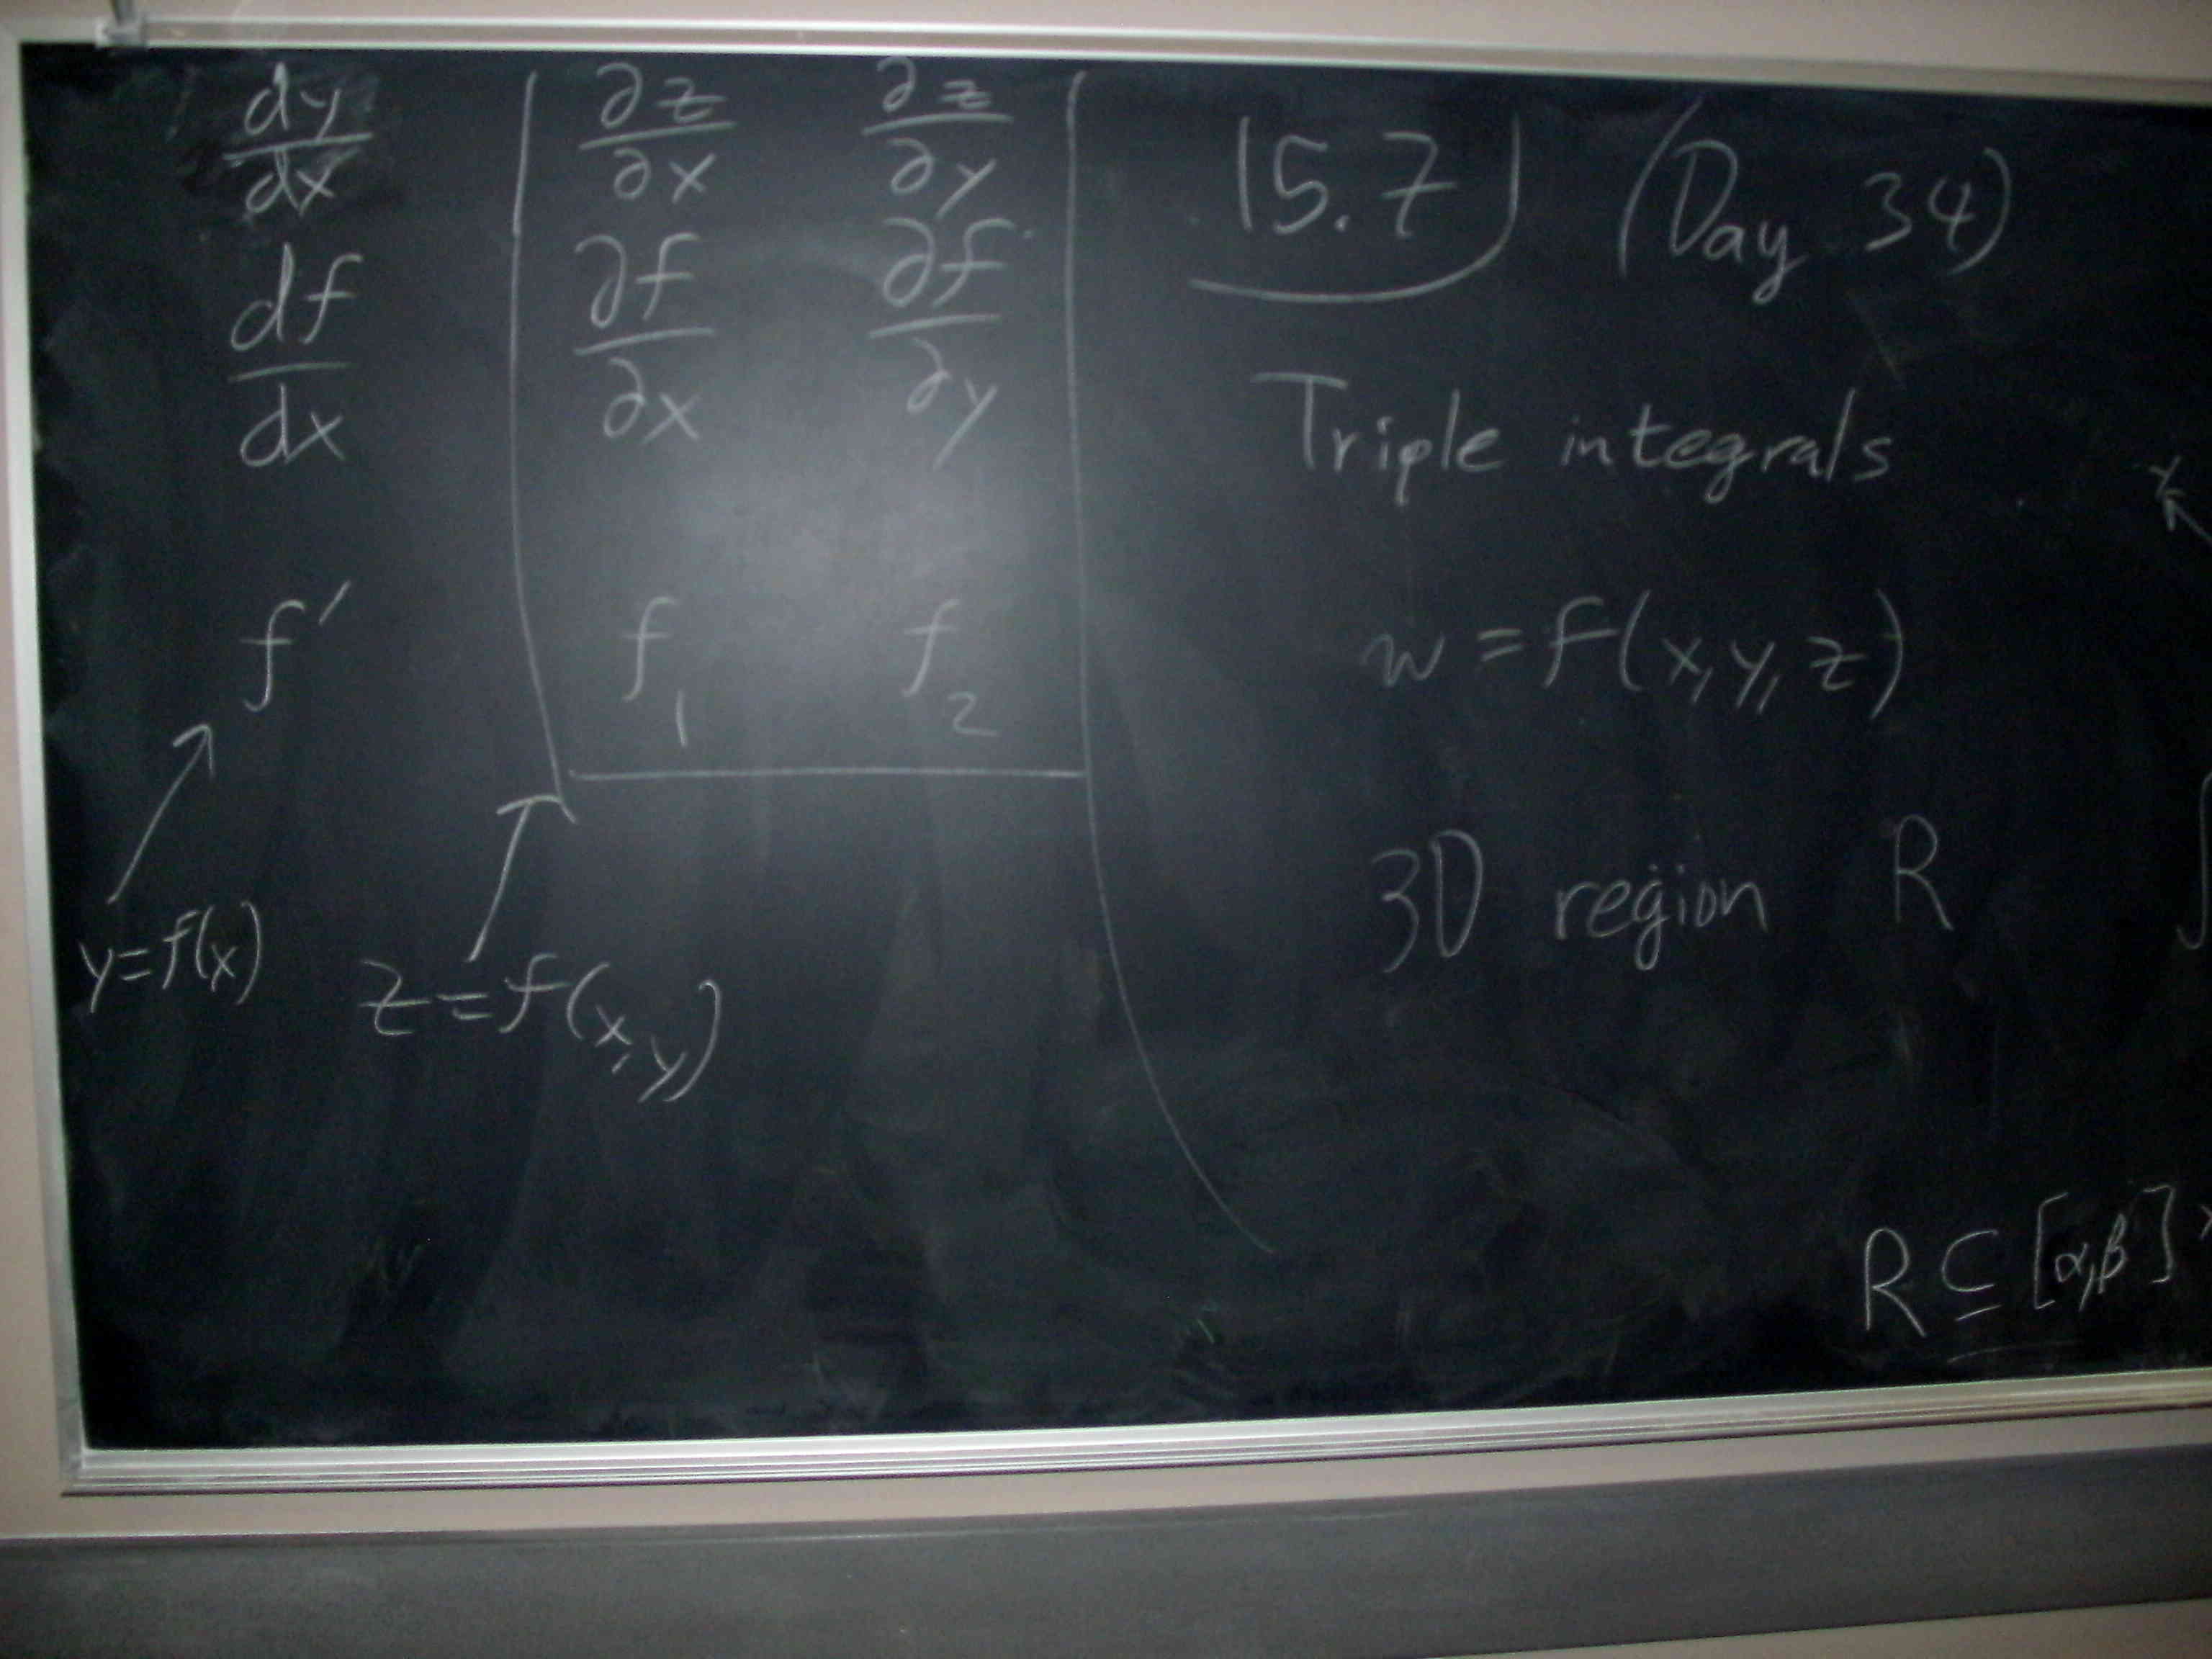 dy/dx
df/dx
f′
y=f(x)
∂z/∂x ∂z/∂y
∂f/∂x ∂f/∂y
f₁ f₂
z=f(x,y)
15.7 (Day 34)
Triple integrals
w=f(x,y,z)
3D region R
R ⊆ [α,β]